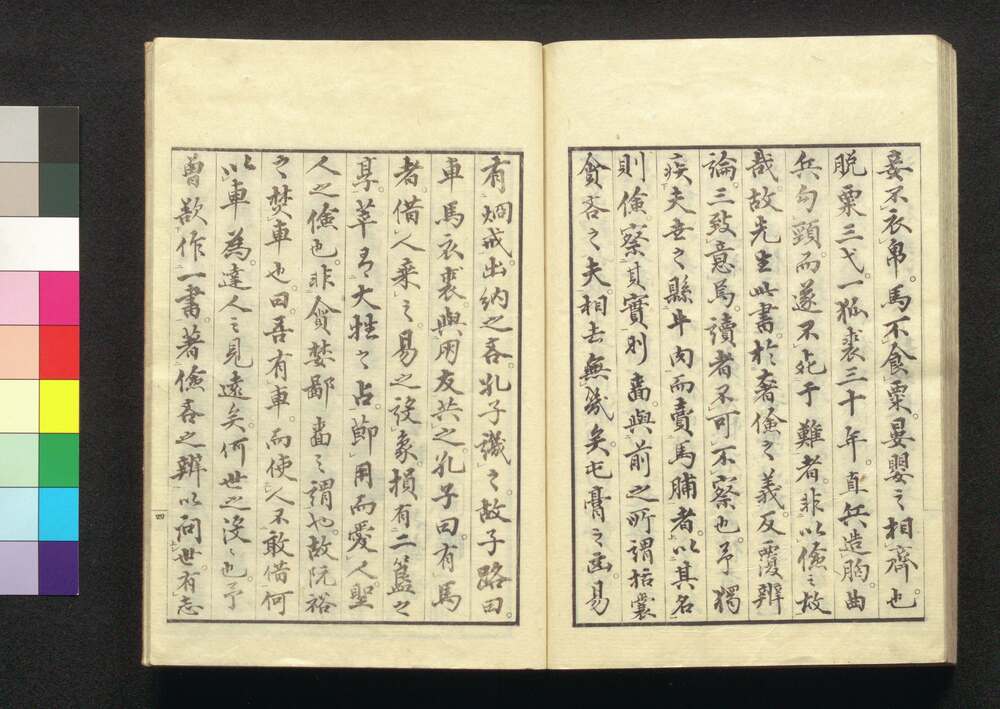 妾不衣帛。馬不食粟。晏嬰之相齊也
脱粟三弋。一狐裘三十年。直兵造胸。曲
兵勾頸。而遂不死于難者。非以儉之故
哉。故先生此書。於奢儉之義反覆辨
論。三致意焉。讀者不可不察也。予獨
疾夫世之縣牛肉而賣馬脯者。以其名
則儉。察其實則嗇。與前之所謂括囊
貪吝之夫。相去無幾矣。屯膏之凶。易
有烱戒出納之吝。孔子譏之。故子路曰。
車馬衣裘。與朋友共之。孔子曰。有馬
者。借人乘之。易之彖象。損有二簋之
享。萃有大牲之占。節用而愛人聖
人之儉也。非貪婪鄙嗇之謂也。故阮裕
之焚車也。曰。吾有車。而使人不敢借何
以車為。達人之見遠矣。何世之沒〻也。予
曽欲作一書。著儉吝之辨以問世。有志
四